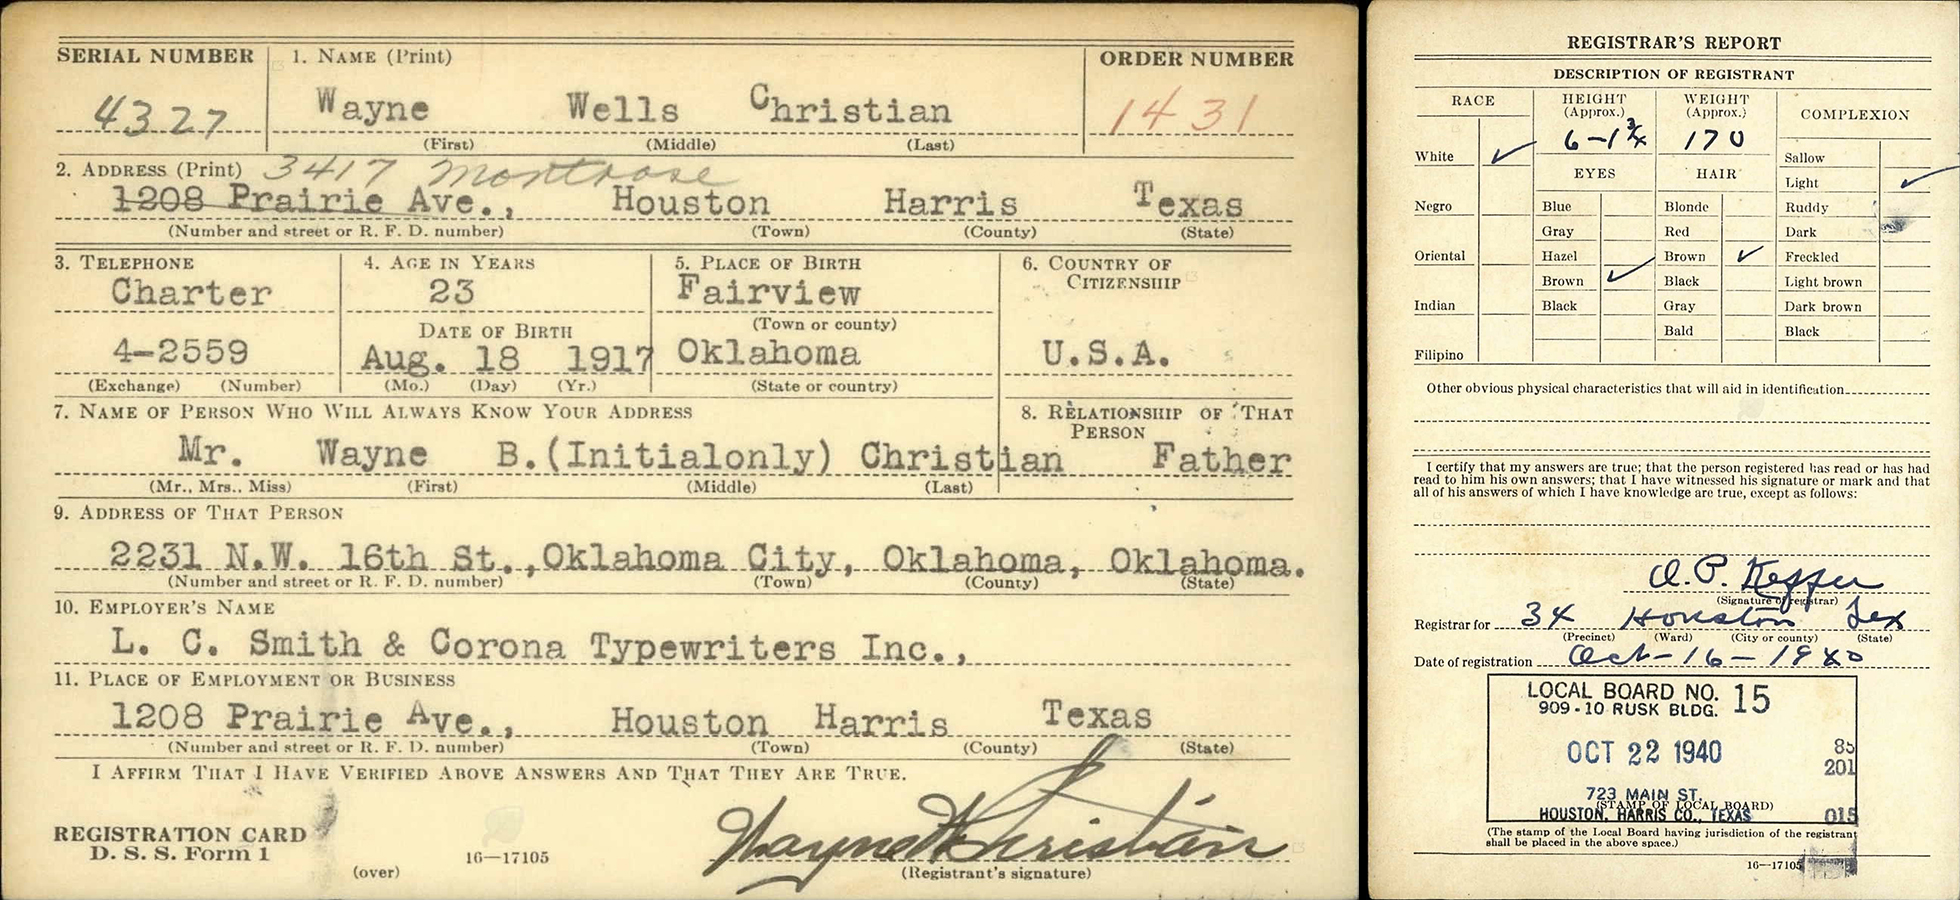 SERIAL NUMBER 1. NAME (Print) ORDER NUMBER
4327 Wayne Wells Christian 1431
(First) (Middle) (Last)
2. ADDRESS (Print) 3417 Montrose
1208 Prairie Ave., Houston Harris Texas
(Number and street or R. F. D. number) (Town) (County) (State)
3. TELEPHONE 4. AGE IN YEARS 5. PLACE OF BIRTH 6. COUNTRY OF CITIZENSHIP
Charter 23 Fairview
DATE OF BIRTH (Town or county)
4-2559 Aug. 18 1917 Oklahoma U.S.A.
(Exchange) (Number) (Mo.) (Day) (Yr.) (State or country)
7. NAME OF PERSON WHO WILL ALWAYS KNOW YOUR ADDRESS 8. RELATIONSHIP OF THAT PERSON
Mr. Wayne B.(Initialonly) Christian Father
(Mr., Mrs., Miss) (First) (Middle) (Last)
9. ADDRESS OF THAT PERSON
2231 N.W. 16th St.,Oklahoma City, Oklahoma, Oklahoma.
(Number and street or R. F. D. number) (Town) (County) (State)
10. EMPLOYER'S NAME
L. C. Smith & Corona Typewriters Inc.,
11. PLACE OF EMPLOYMENT OR BUSINESS
1208 Prairie Ave., Houston Harris Texas
(Number and street or R. F. D. number) (Town) (County) (State)
I AFFIRM THAT I HAVE VERIFIED ABOVE ANSWERS AND THAT THEY ARE TRUE.
REGISTRATION CARD
D. S. S. Form 1 16—17105 Wayne W Christian
(over) (Registrant's signature)
REGISTRAR'S REPORT
DESCRIPTION OF REGISTRANT
RACE HEIGHT (Approx.) WEIGHT (Approx.) COMPLEXION
White ✓ 6-1 3/4 170 Sallow
EYES HAIR Light ✓
Negro Blue Blonde Ruddy
Gray Red Dark
Oriental Hazel Brown ✓ Freckled
Brown ✓ Black Light brown
Indian Black Gray Dark brown
Bald Black
Filipino
Other obvious physical characteristics that will aid in identification
I certify that my answers are true; that the person registered has read or has had
read to him his own answers; that I have witnessed his signature or mark and that
all of his answers of which I have knowledge are true, except as follows:
O. P. Keffer
(Signature of registrar)
Registrar for 34 Houston Tex
(Precinct) (Ward) (City or county) (State)
Date of registration Oct-16-1940
LOCAL BOARD NO. 15
909-10 RUSK BLDG.
OCT 22 1940 85
201
723 MAIN ST.
(STAMP OF LOCAL BOARD)
HOUSTON, HARRIS CO., TEXAS 015
(The stamp of the Local Board having jurisdiction of the registrant
shall be placed in the above space.)
16—17105